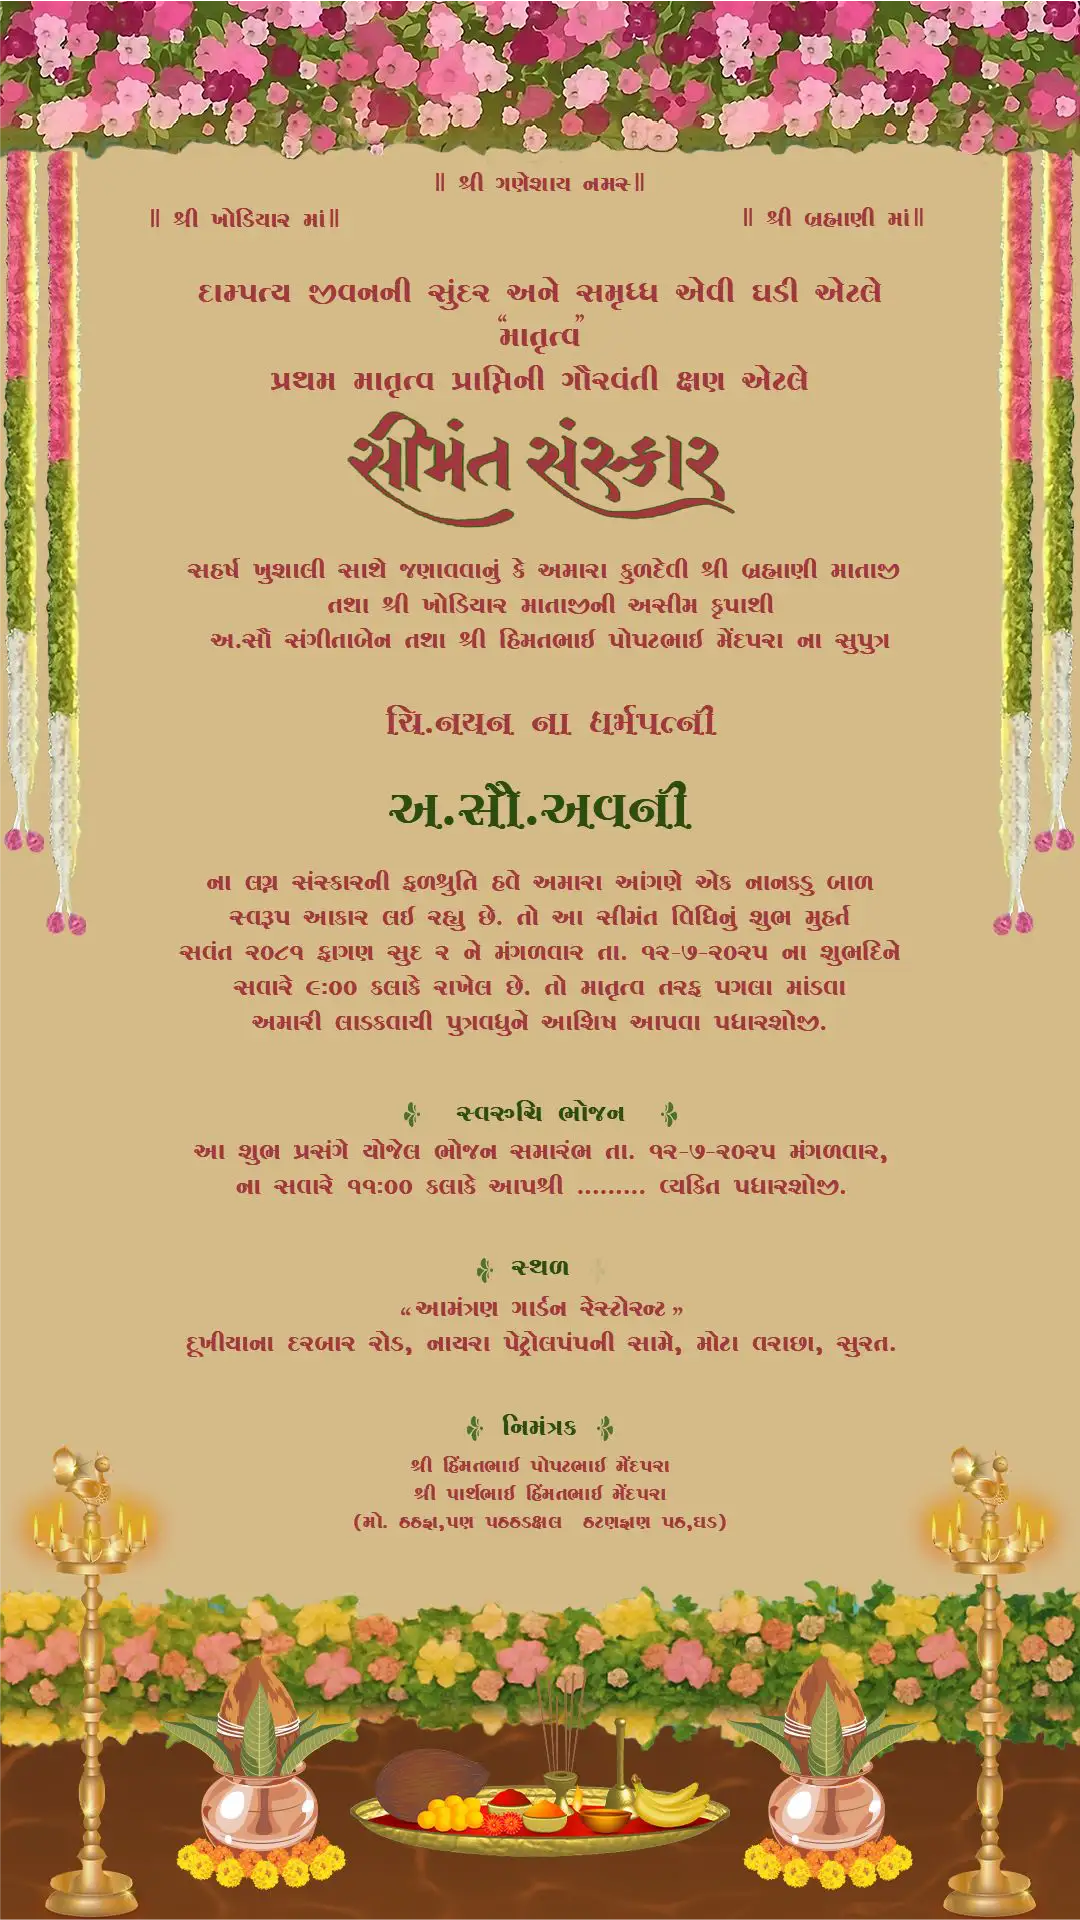 ॥ શ્રી ગણેશાય નમસ॥
॥ શ્રી ખોડિયાર માં॥
॥ શ્રી બ્રહ્માણી માં॥
દામ્પત્ય જીવનની સુંદર અને સમૃધ્ધ એવી ઘડી એટલે
“માતૃત્વ”
પ્રથમ માતૃત્વ પ્રાપ્તિની ગૌરવંતી ક્ષણ એટલે
સીમંત સંસ્કાર
સહર્ષ ખુશાલી સાથે જણાવવાનું કે અમારા કુળદેવી શ્રી બ્રહ્માણી માતાજી
તથા શ્રી ખોડિયાર માતાજીની અસીમ કૃપાથી
અ.સૌ સંગીતાબેન તથા શ્રી હિમતભાઈ પોપટભાઈ મેંદપરા ના સુપુત્ર
ચિ.નયન ના ધર્મપત્ની
અ.સૌ.અવની
ના લગ્ન સંસ્કારની ફળશ્રુતિ હવે અમારા આંગણે એક નાનકડુ બાળ
સ્વરૂપ આકાર લઈ રહ્યુ છે. તો આ સીમંત વિધિનું શુભ મુહર્ત
સવંત ૨૦૮૧ ફાગણ સુદ ૨ ને મંગળવાર તા. ૧૨-૭-૨૦૨૫ ના શુભદિને
સવારે ૯:૦૦ કલાકે રાખેલ છે. તો માતૃત્વ તરફ પગલા માંડવા
અમારી લાડકવાયી પુત્રવધુને આશિષ આપવા પધારશોજી.
સ્વરુચિ ભોજન
આ શુભ પ્રસંગે યોજેલ ભોજન સમારંભ તા. ૧૨-૭-૨૦૨૫ મંગળવાર,
ના સવારે ૧૧:૦૦ કલાકે આપશ્રી ......... વ્યકિત પધારશોજી.
સ્થળ
“આમંત્રણ ગાર્ડન રેસ્ટોરન્ટ”
દૂખીયાના દરબાર રોડ, નાયરા પેટ્રોલપંપની સામે, મોટા વરાછા, સુરત.
નિમંત્રક
શ્રી હિંમતભાઈ પોપટભાઈ મેંદપરા
શ્રી પાર્થભાઈ હિંમતભાઈ મેંદપરા
(મો. ઠઠજ્ઞ,પણ પઠઠડક્ષલ ઠટણજ્ઞણ પઠ,ઘડ)